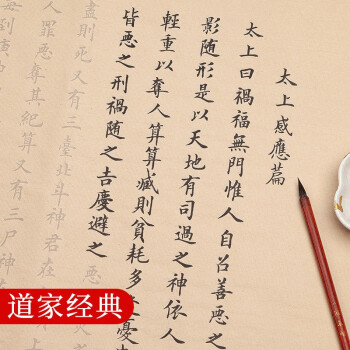 太上感應篇
太上曰禍福無門惟人自召善惡之
影隨形是以天地有司過之神依人
輕重以奪人算算減則貧耗多逢憂
皆惡之刑禍隨之吉慶避之惡
盡則死又有三臺北斗神君在
人罪惡奪其紀算又有三尸神
到庚
道家经典